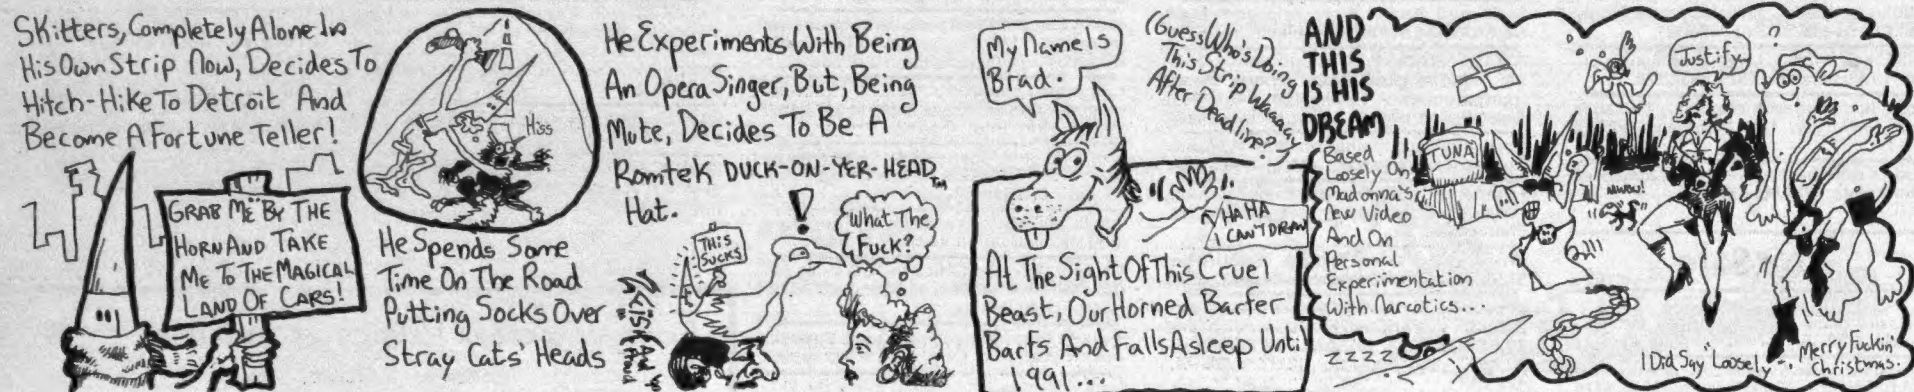 SKitters, Completely Alone In
His Own Strip Now, Decides To
Hitch-Hike To Detroit And
Become A Fortune Teller!
GRAB ME BY THE
HORN AND TAKE
ME TO THE MAGICAL
LAND OF CARS!
Hiss
He Spends Some
Time On The Road
Putting Socks Over
Stray Cats' Heads
He Experiments With Being
An Opera Singer, But, Being
Mute, Decides To Be A
Romtek DUCK-ON-YER-HEAD™
Hat.
THIS
SUCKS
!
What The
Fuck?
My Name Is
Brad.
(Guess Who's Doing
This Strip Waaaay
After Deadline?)
HA HA
I CAN'T DRAW
At The Sight Of This Cruel
Beast, Our Horned Barfer
Barfs And Falls Asleep Until
1991...
AND
THIS
IS HIS
DREAM
Based
Loosely On
Madonna's
New Video
And On
Personal
Experimentation
With Narcotics...
TUNA
Justify
?
zzzz
I Did Say "Loosely".
Merry Fuckin'
Christmas.